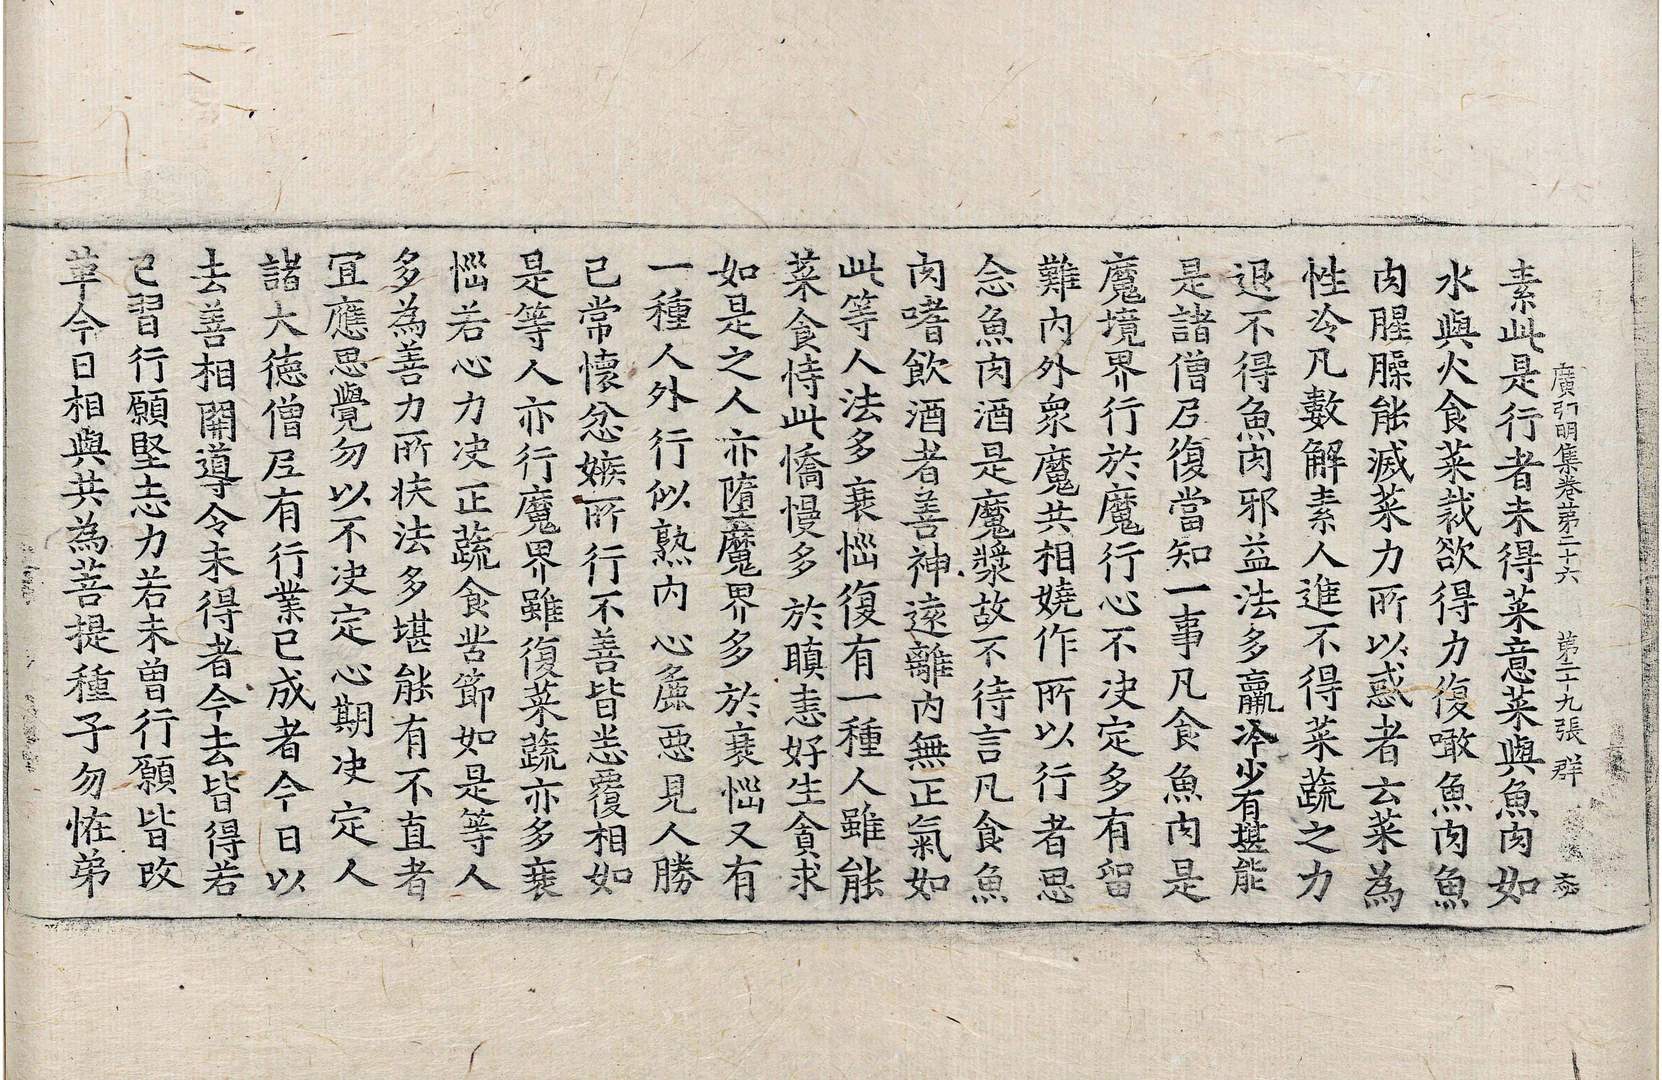 廣弘明集卷第二十六 第二十九張 群
素此是行者未得菜意菜與魚肉如
水與火食菜裁欲得力復噉魚肉魚
肉腥臊能滅菜力所以惑者云菜為
性冷凡數解素人進不得菜蔬之力
退不得魚肉邪益法多羸冷少有堪能
是諸僧尼復當知一事凡食魚肉是
魔境界行於魔行心不决定多有留
難內外衆魔共相嬈作所以行者思
念魚肉酒是魔漿故不待言凡食魚
肉嗜飲酒者善神遠離內無正氣如
此等人法多衰惱復有一種人雖能
菜食恃此憍慢多於瞋恚好生貪求
如是之人亦墮魔界多於衰惱又有
一種人外行似熟內心麁惡見人勝
已常懷忿嫉所行不善皆悉覆相如
是等人亦行魔界雖復菜蔬亦多衰
惱若心力决正蔬食苦節如是等人
多為善力所扶法多堪能有不直者
宜應思覺勿以不决定心期决定人
諸大德僧尼有行業已成者今日以
去善相開導令未得者今去皆得若
已習行願堅志力若未曾行願皆改
革今日相與共為菩提種子勿恠弟